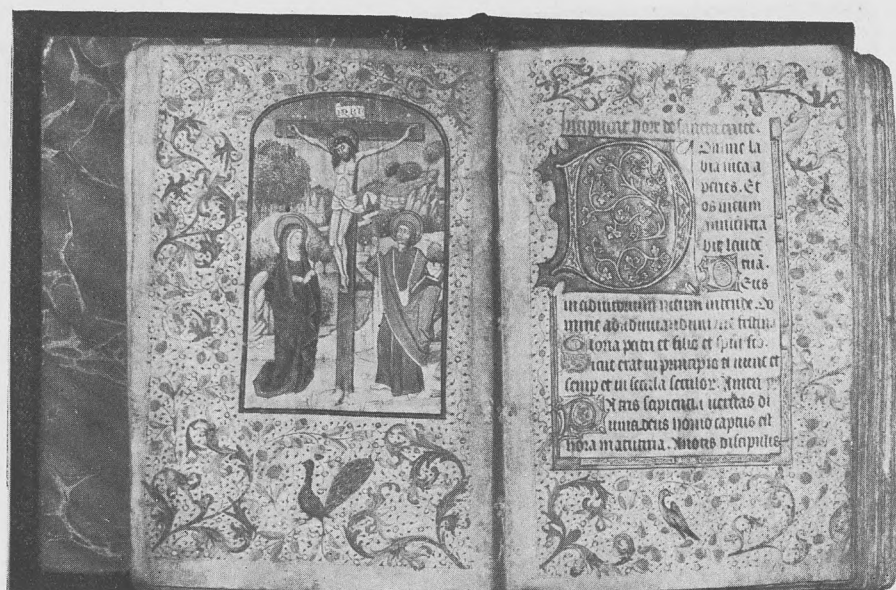 INRI
Incipiunt hore de sancta cruce.
Domine la
bia mea a
peries. Et
os meum
annuncia
bit laude
tuā.
Deus
in adiutorium meum intende. Do
mine ad adiuvandum me festina
Gloria patri et filio et spiri sco.
Sicut erat in principio et nunc et
semp et in secula seculoꝝ. Amen
Patris sapiencia ueritas di
uina. deus homo captus est
hora matutina. Anotis discipulis